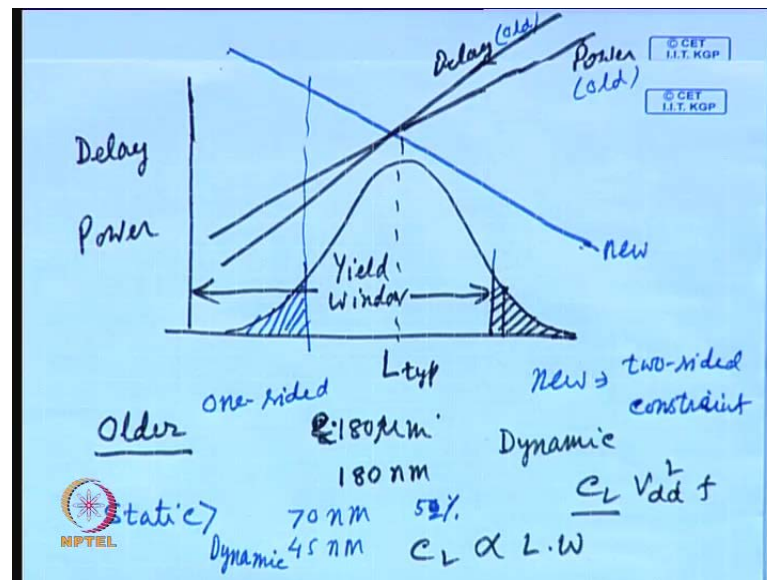 Delay (old)
Power
(old)
© CET
I.I.T. KGP
© CET
I.I.T. KGP
Delay
Power
new
Yield
window
Ltyp
one-sided
new → two-sided
constraint
Older
180 μm
180 nm
Dynamic
C_L Vdd² f
Static >
70 nm
Dynamic 45 nm
C_L ∝ L.W
NPTEL